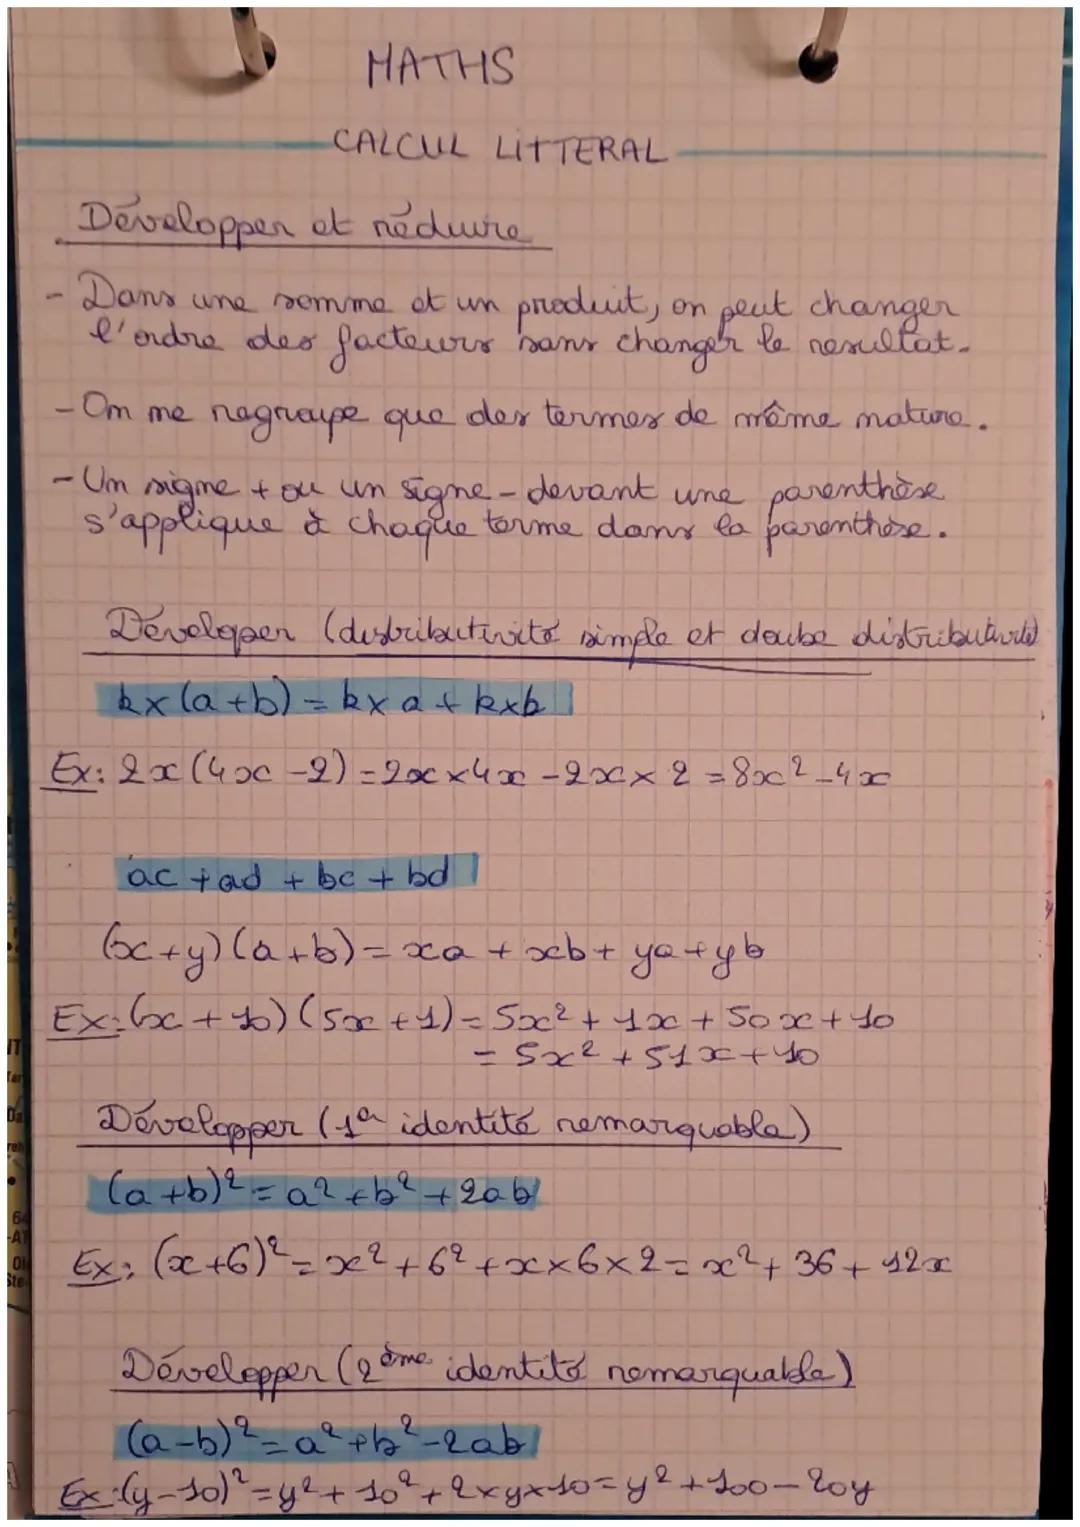 MATHS
CALCUL LITTERAL
Développer et réduire
- Dans une somme et un produit, on peut changer
l'ordre des facteurs sans changer le resultat.
- On ne regroupe que des termes de même nature.
- Un signe + ou un signe - devant une parenthèse
s'applique à chaque terme dans la parenthèse.
Déveloper (distributivité simple et doube distributivité)
k×(a+b) = k×a + k×b
Ex: 2x(4x-2) = 2x×4x - 2x×2 = 8x² - 4x
ac + ad + bc + bd
(x+y)(a+b) = xa + xb + ya + yb
Ex: (x+10)(5x+1) = 5x² + 1x + 50x + 10
= 5x² + 51x + 10
Développer (1ere identité remarquable)
(a+b)² = a² + b² + 2ab
Ex: (x+6)² = x² + 6² + x×6×2 = x² + 36 + 12x
Développer (2ème identité remarquable)
(a-b)² = a² + b² - 2ab
Ex: (y-10)² = y² + 10² + 2×y×10 = y² + 100 - 20y